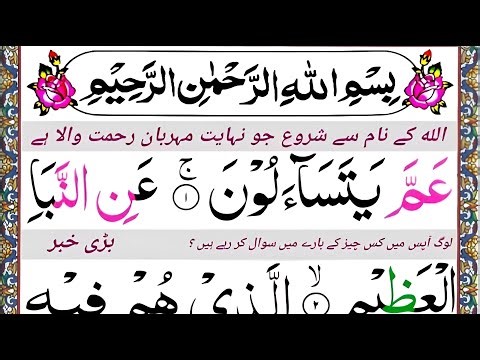 بِسْمِ اللهِ الرَّحْمٰنِ الرَّحِيْمِ
الله کے نام سے شروع جو نہایت مہربان رحمت والا ہے
عَمَّ يَتَسَآءَلُوْنَ ۚ ۝۱ عَنِ النَّبَاِ
لوگ آپس میں کس چیز کے بارے میں سوال کر رہے ہیں ؟ بڑی خبر
الْعَظِيْمِ ۙ ۝۲ الَّذِيْ هُمْ فِيْهِ